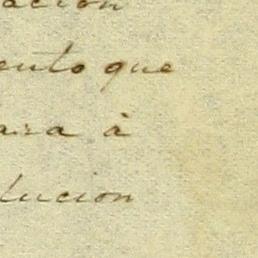 acion
ento que
ara à
lucion